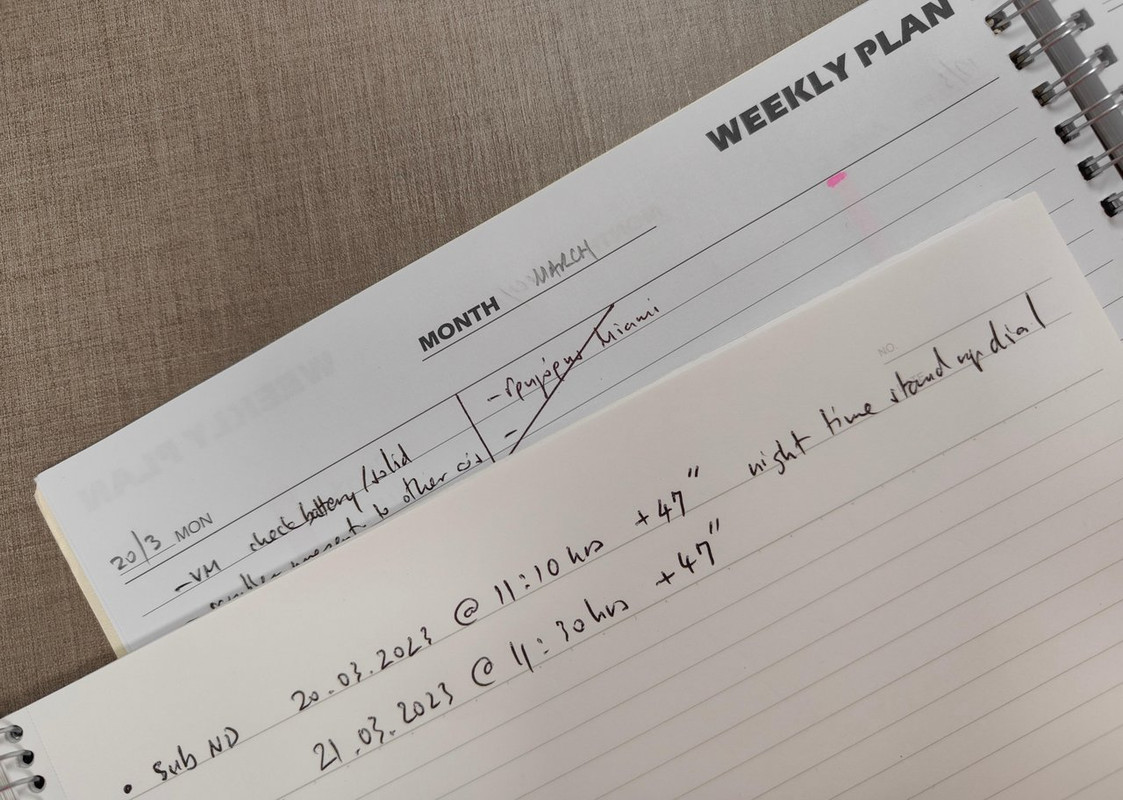 WEEKLY PLAN
MONTH MARCH
20/3 MON
- Miami
-
- VM check battery/solid
present to other
NO.
• Sub ND 20.03.2023 @ 11:10 hrs +47" night time stand up dial
21.03.2023 @ 11:30 hrs +47"